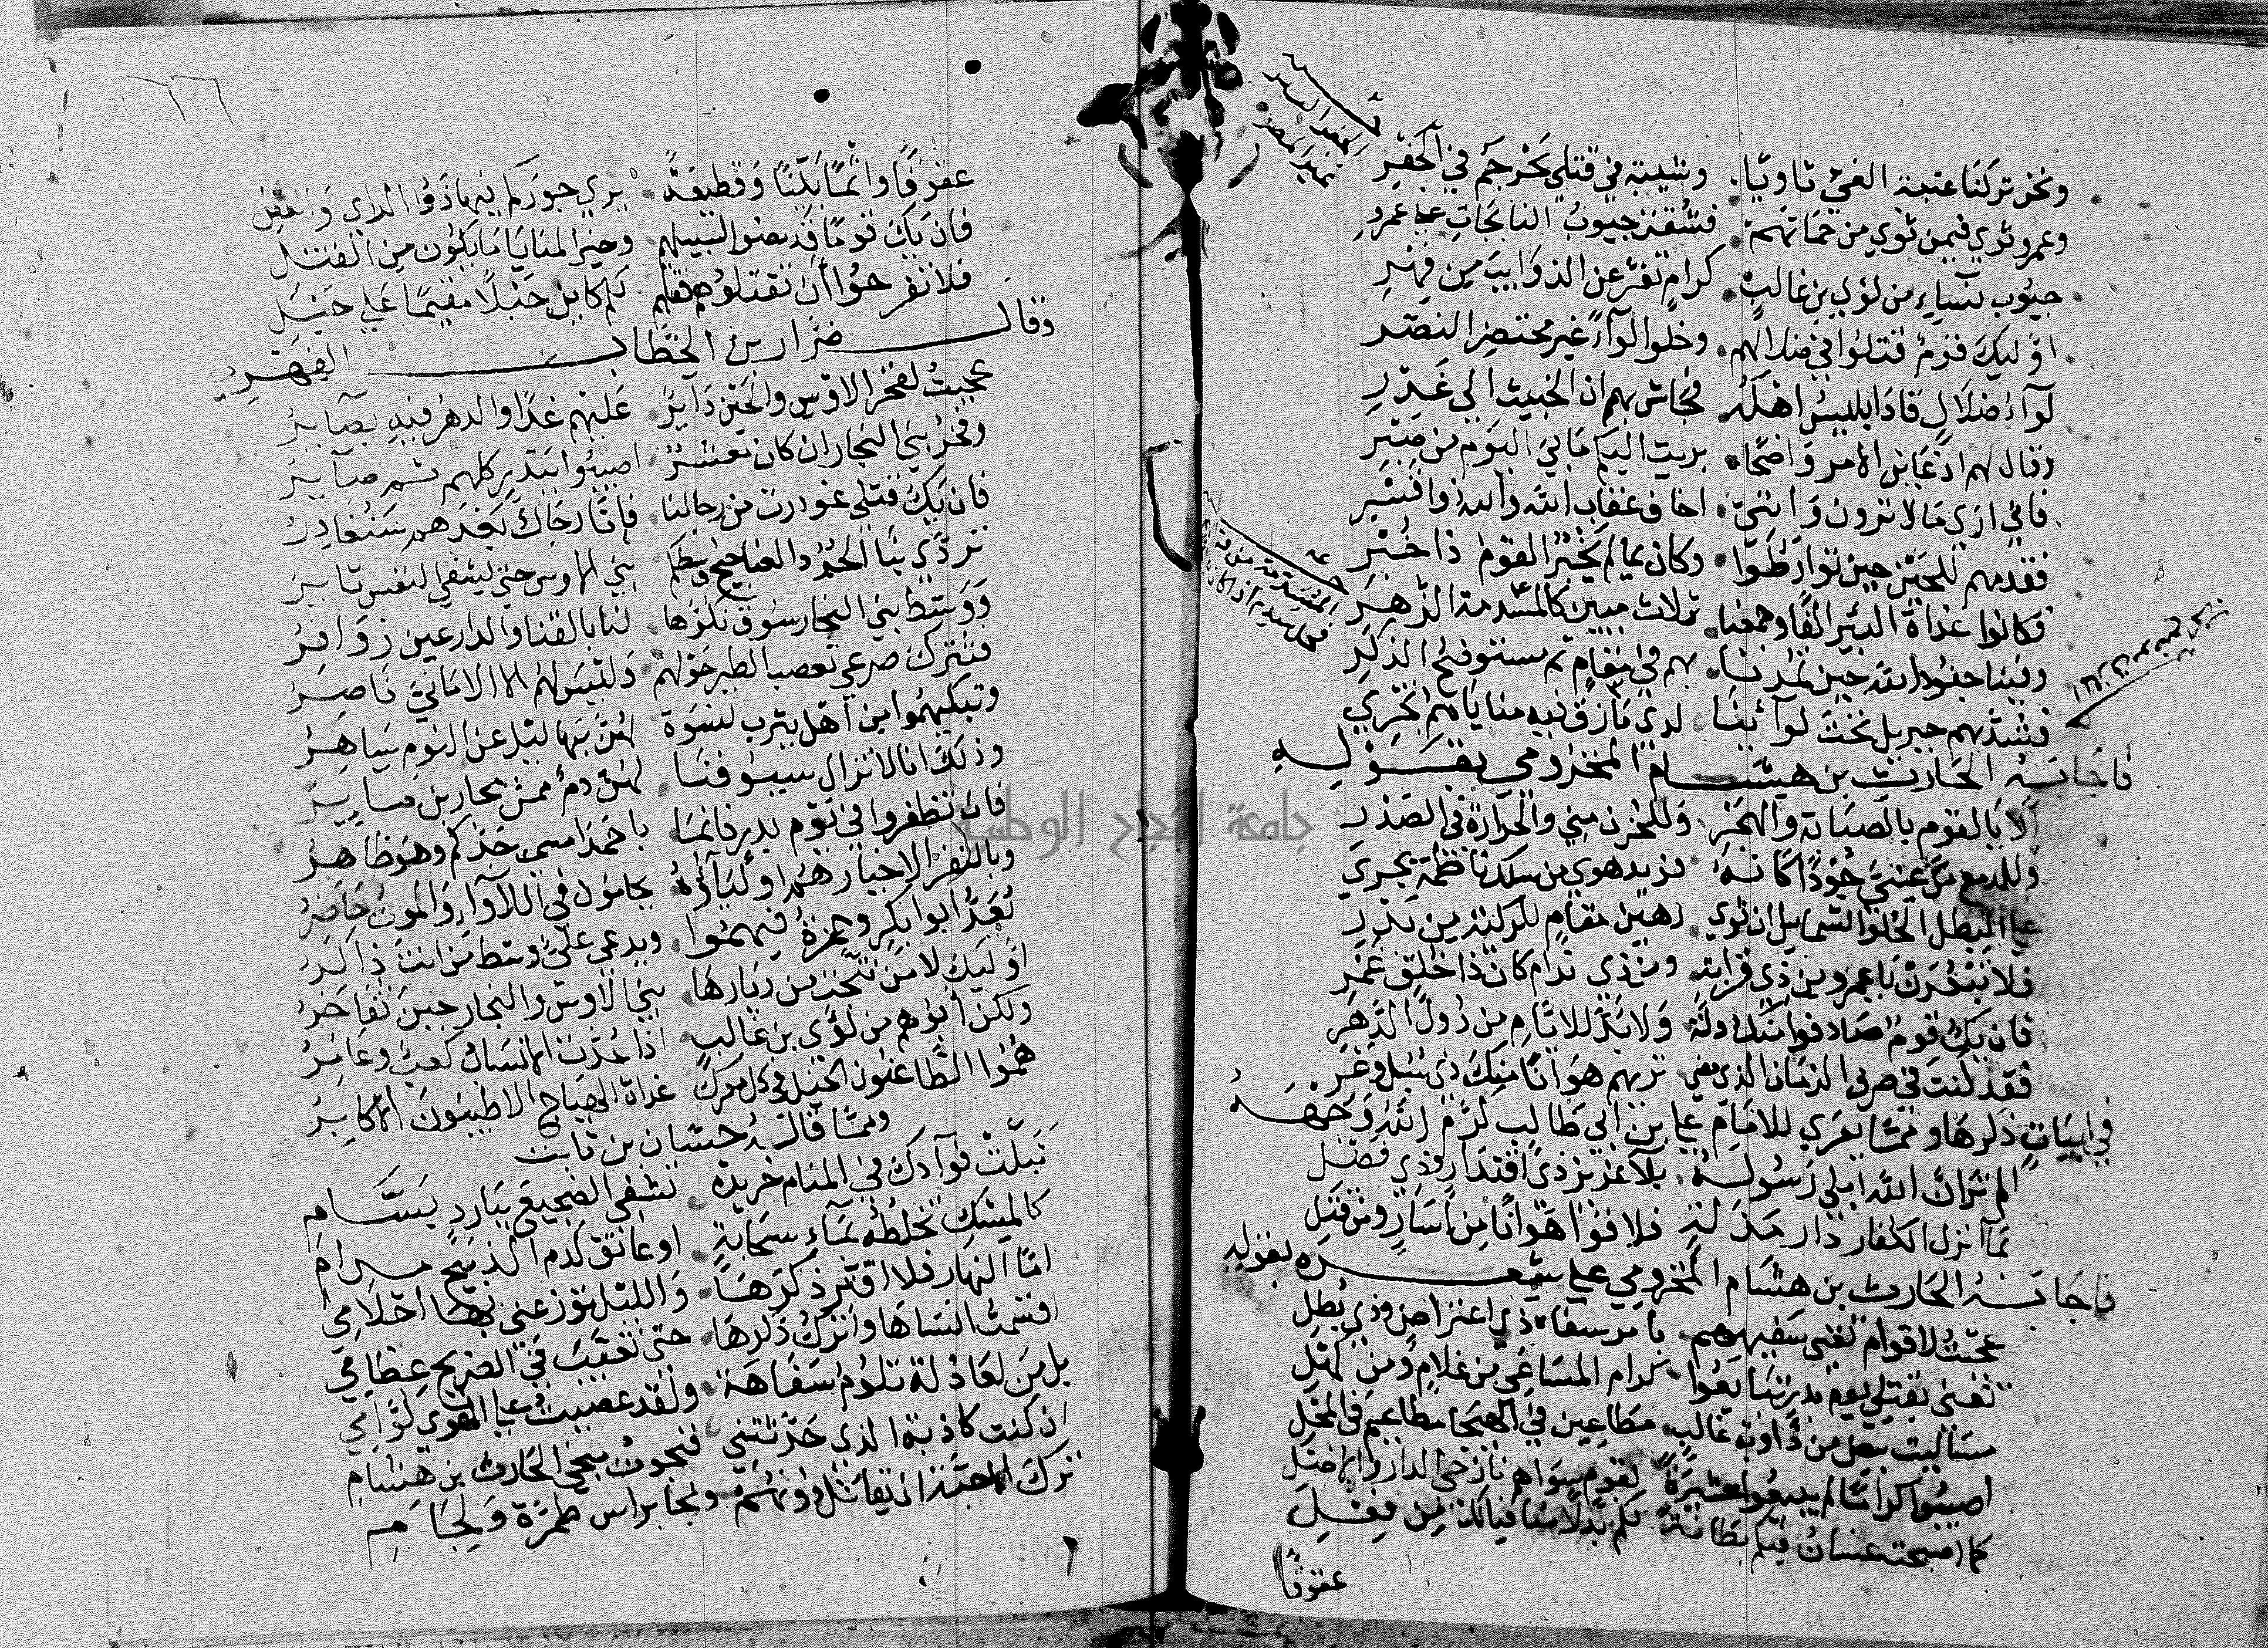 ونحن تركنا عتبة الغي ثاويا وشيبة في قتلى تجرجم في الجفر
وعمرو ثوي فيمن ثوي من حماتهم فشقت جيوب النائحات على عمرو
جيوب نساء من لؤي بن غالب كرام تفرعن الذوايب من فهر
اوليك قوم قتلوا في ضلالهم وخلوا لوآء غير محتضر النصر
لوآء ضلال قاد ابليس اهله فخاش بهم ان الخبيث الي غدر
وقال لهم اذ عاين الامر واضحا بريت اليكم ما بي اليوم من صبر
فاني اري ما لا ترون وانني اخاف عقاب الله والله ذو قسر
فقدمهم للحين حين تورطوا وكان بما لم يخبر القوم ذا خبر
فكانوا غداة البئر الفا وجمعنا ثلاث مبين كالمسدمة الزهر
وفينا جنود الله حين يمدنا بهم في مقام ثم مستوضح الذكر
فشد بهم جبريل تحت لوآئنا لدي مازق فيه مناياهم تجري
فاجابه الحارث بن هيشام المخزومي بقوله
الا يا لقوم بالصبابة والهجر وللحزن مني والحرارة في الصدر
وللدمع من عيني جودا كانه فريد هوي من سلك ناظمة يجري
علي البطل الحلو الشمايل ان ثوي رهين مقام للركية من بدر
فلا تبعدن يا عمرو من ذي قرابة ومن ذي ندام كان ذا خلق غمر
فان يك قوم صادفوا منك دولة ولا بد للايام من دول الدهر
فقد كنت في صرف الزمان الذي مضي تريهم هوانا منك ذي سبل وعر
في ابيات ذكرها ومما يعزي للامام علي بن ابي طالب كرم الله وجهه
الم تران الله ابلي رسوله بلآء عزيز ذي اقتدار وذي فضل
بما انزل الكفار دار مذلة فلاقوا هوانا من اسار ومن قتل
فاجابه الحارث بن هشام المخزومي علي شعره بقوله
عجبت لاقوام تغني سفيههم بامر سفاه ذي اعتراض وذي بطل
تغني بقتلي يوم بدر تتابعوا كرام المساعي من غلام ومن كهل
مصاليت بيض من ذؤابة غالب مطاعين في الهيجا مطاعيم في المحل
اصيبوا كراما لم يبيعوا عشيرة لقوم سواهم نازحي الدار والاصل
كما اصبحت غسان فيكم بطانة لكم بدلا منا فيالك من فعل
عقوقا
عقوقا واثما بينا وقطيعة يري جوركم فيها ذووا الراي والعقل
فان يك قوما قد مضوا لسبيلهم وخير المنايا ما يكون من القتل
فلا تفرحوا ان تقتلوهم فقتلهم لكم كاين خبلا مقيما علي خبل
وقال ضرار بن الخطاب الفهري
عجبت لفخر الاوس والحين داير عليهم غدا والدهر فيه بصآير
وفخر بني النجار ان كان معشر اصيبوا ببدر كلهم ثم صآير
فان يك قتلي غودرت من رجالنا فانا رجاك بعدهم سنغادر
تردي بنا الجرد العناجيج وسطكم بني الاوس حتي يشفي النفس ثاير
ووسط بني النجار سوف نكرها لنا بالقنا والدارعين زوافر
فنترك صرعي تعصب الطير حولهم وليس لهم الا الاماني ناصر
وتبكيهموا من اهل يثرب نسوة لهن بها ليل عن النوم ساهر
وذلك انا لا تزال سيوفنا لهن دم ممن يحاربن ماير
فان تظفروا في يوم بدر فانما باحمد امسي جدكم وهو ظاهر
وبالنفر الاخيار هم اوليآؤه يحامون في اللاوآء والموت حاضر
يعد ابو بكر وحمزة فيهموا ويدعي علي وسط من انت ذاكر
اوليك لا من نتجت من ديارها بني الاوس والنجار حين تفاخر
ولكن ابوهم من لؤي بن غالب اذا عدت الانساب كعب وعامر
هموا الطاعنون الخيل في كل معرك غداة الهياج الاطيبون الاكابر
ومما قاله حسان بن ثابت
تبلت فوآدك في المنام خريدة تشفي الضجيع ببارد بسام
كالمسك تخلطه بمآء سحابة او عاتق كدم الذبيح مدام
اما النهار فلا افتر ذكرها والليل توزعني بها احلامي
اقسمت انساها واترك ذكرها حتي تغيب في الضريح عظامي
بل من لعاذلة تلوم سفاهة ولقد عصيت علي الهوي لوامي
ان كنت كاذبة الذي حدثتني فنجوت منجي الحارث بن هشام
ترك الاحبة ان يقاتل دونهم ونجا براس طمرة ولجام
جامعة النجاح الوطنية